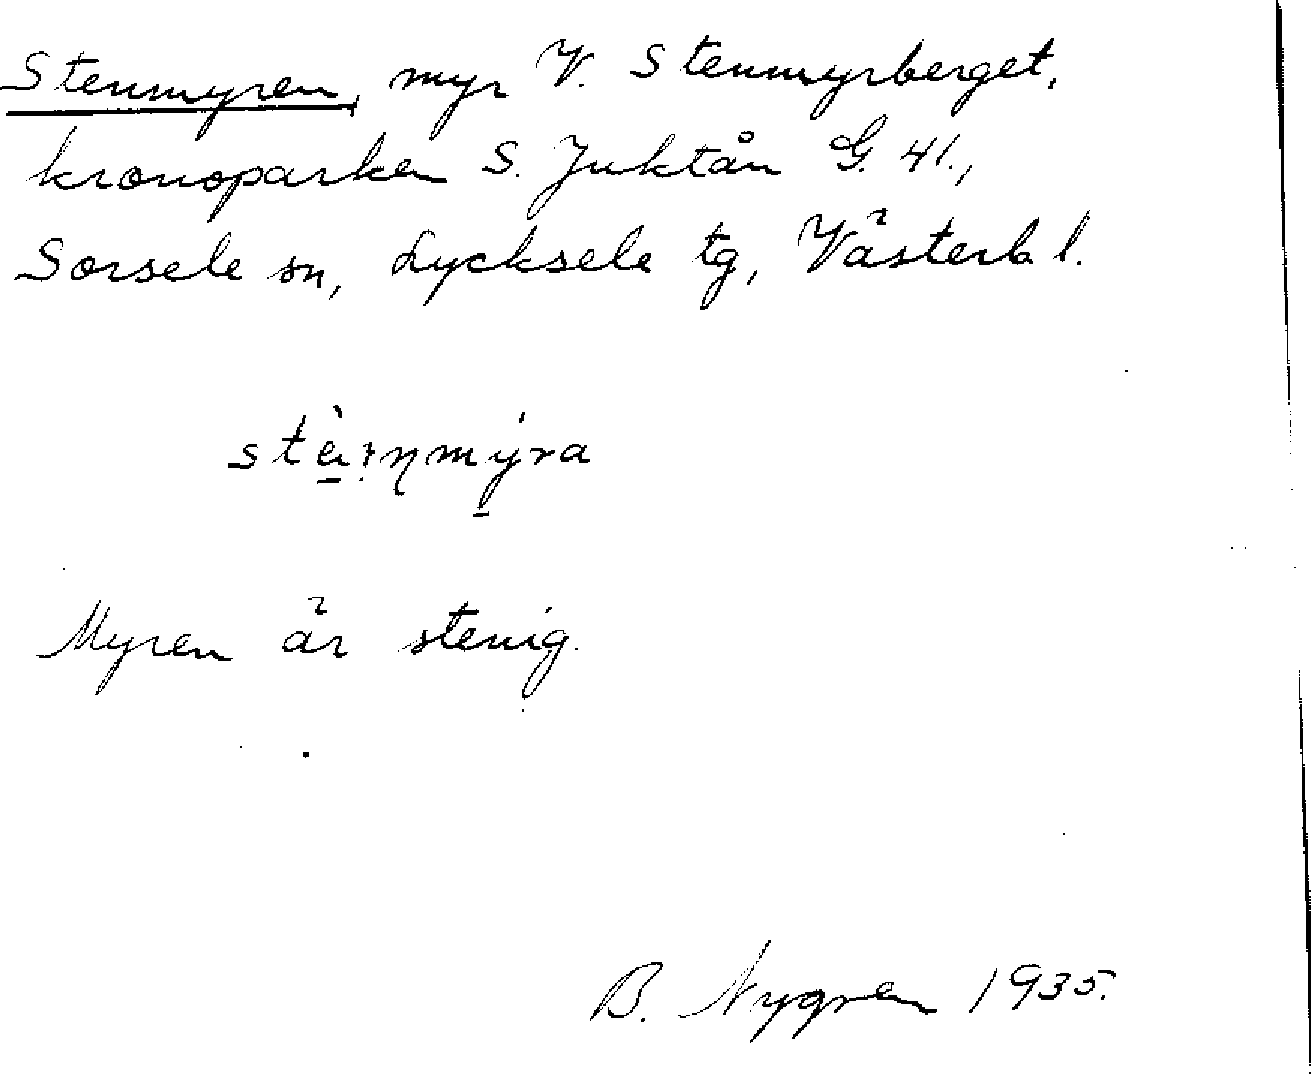 Stenmyren, myr V. Stenmyrberget,
kronoparken S. Juktån G. 41.,
Sorsele sn, Lycksele tg, Västerb. l.
Myren är stenig.
B. Nygren 1935.